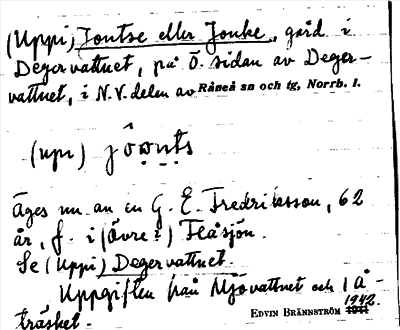 (Uppi) Jontse eller Jonke, gård i
Degervattnet, på Ö. sidan av Deger-
vattnet, i N.V. delen av Råneå sn och tg, Norrb. l.
(upi)
Äges nu av en G. E. Fredriksson, 62
år, f. i (Övre?) Flåsjön.
Se (Uppi) Degervattnet.
Uppgiften från Mjövattnet och 1 å
träsket.
EDVIN BRÄNNSTRÖM 1942